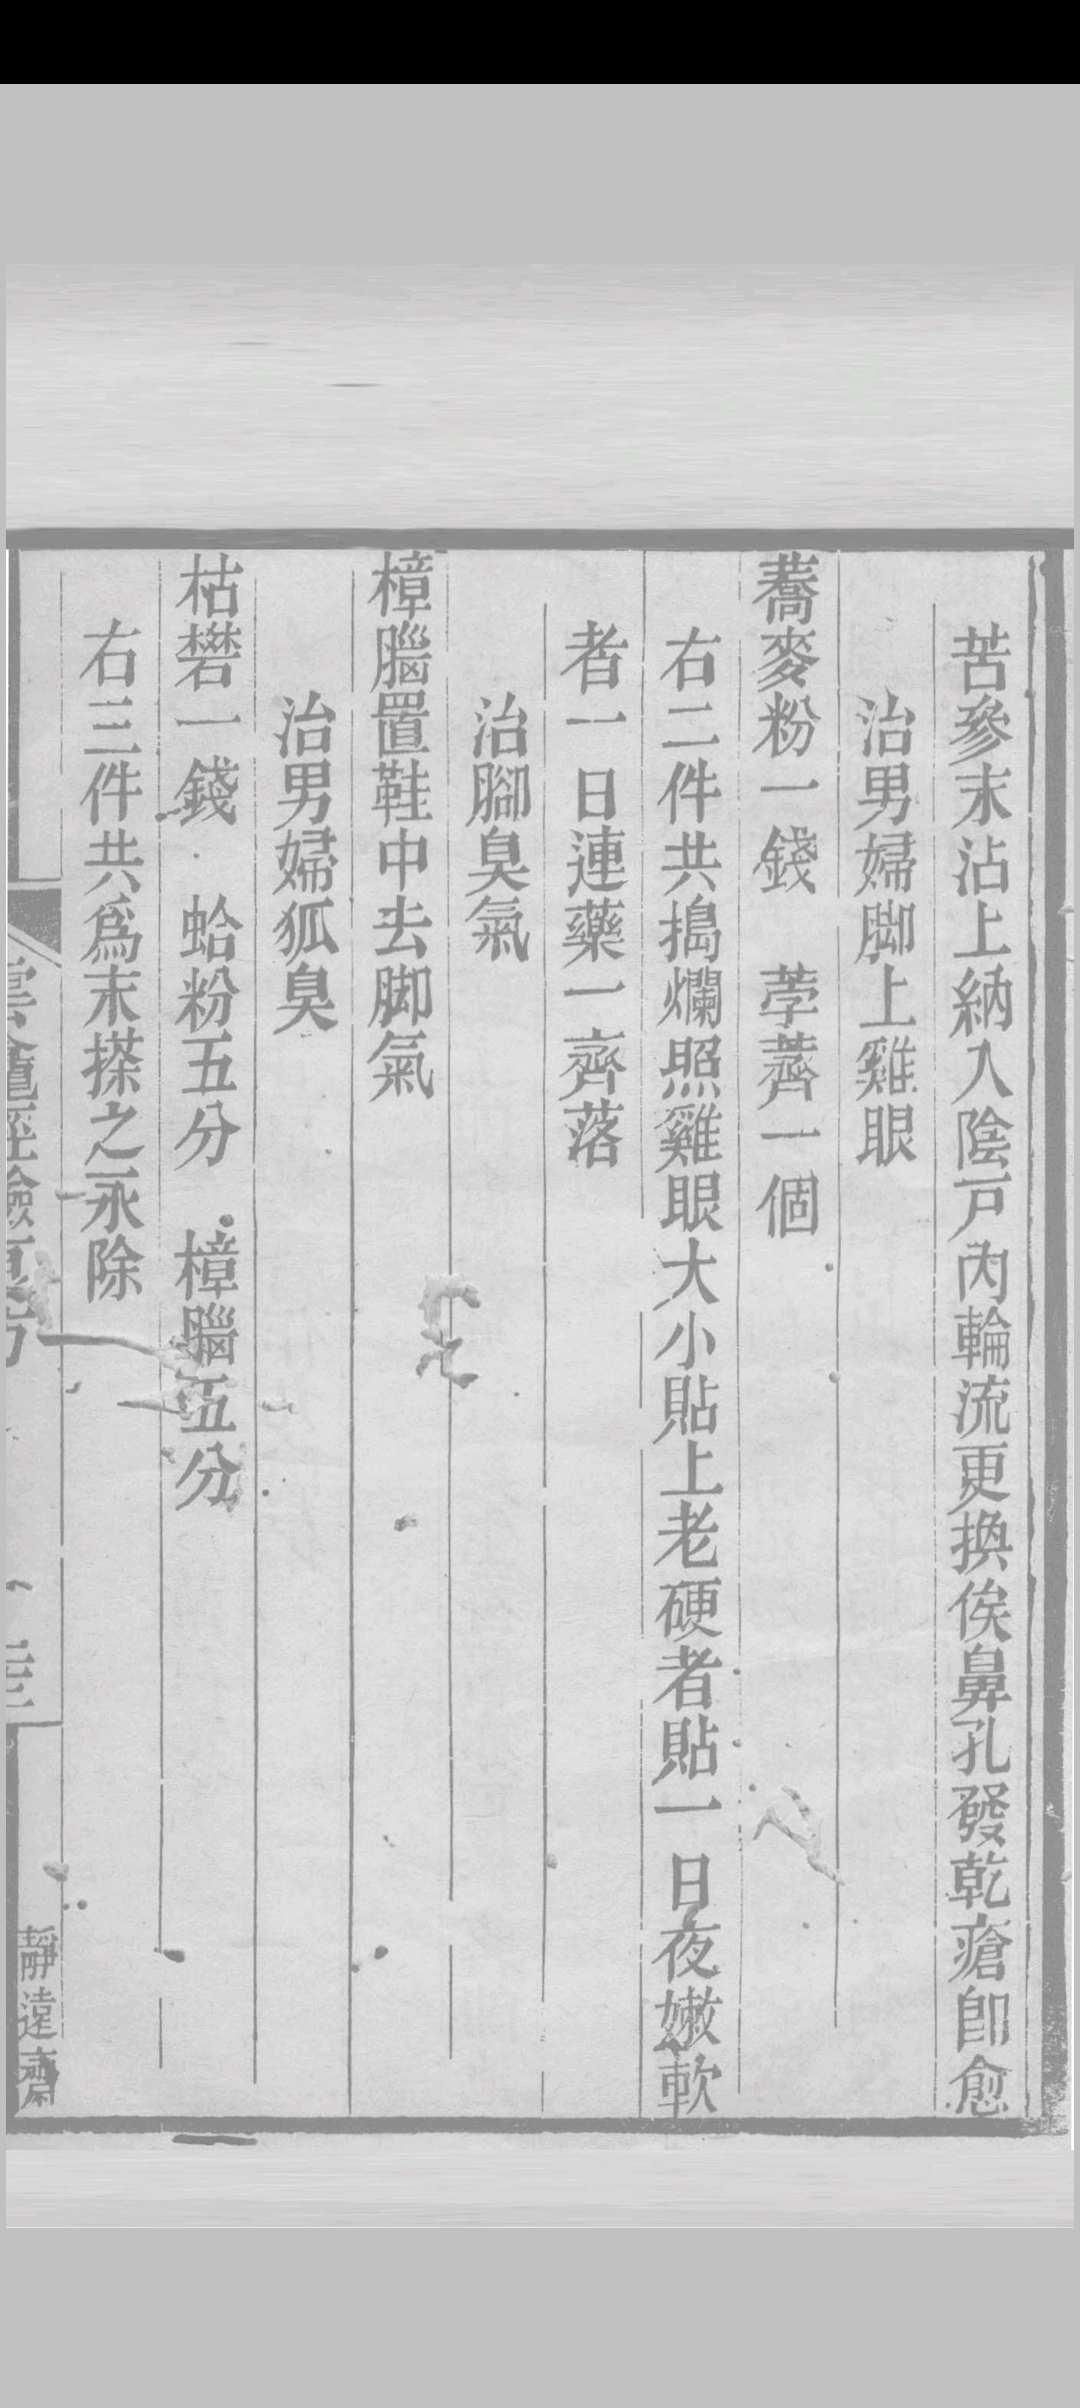 苦參末沾上納入陰戸內輪流更換俟鼻孔發乾瘡卽愈
治男婦脚上雞眼
蕎麥粉一錢　荸薺一個
右二件共搗爛照雞眼大小貼上老硬者貼一日夜嫩軟
者一日連藥一齊落
治腳臭氣
樟腦置鞋中去脚氣
治男婦狐臭
枯礬一錢　蛤粉五分　樟腦五分
右三件共爲末搽之永除
靜遠齋